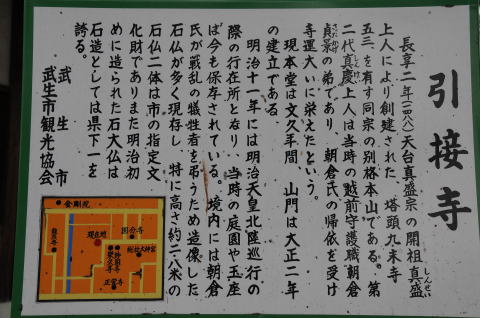 引接寺
長享二年(一四八八)天台真盛宗の開祖真盛
しんせい
上人により創建された 塔頭九末寺
五三を有す同宗の別格本山である。第
二代真慶上人は当時の越前守護職朝倉
貞景の弟であり、朝倉氏の帰依を受け
さだかげ
寺運大いに栄えたという。
現本堂は文久年間、山門は大正二年
の建立である。
明治十一年には明治天皇北陸巡行の
際の行在所となり、当時の庭園や玉座
は今も保存されている。境内には朝倉
氏が戦乱の犠牲者を弔うため造像した
石仏が多く現存し、特に高さ約二・八米の
石仏二体は市の指定文
化財でありまた明治初
めに造られた石大仏は
石造としては県下一を
誇る。
武生市
武生市観光協会
金剛院
龍泉寺
現在地
国分寺
総社大神宮
正覚寺